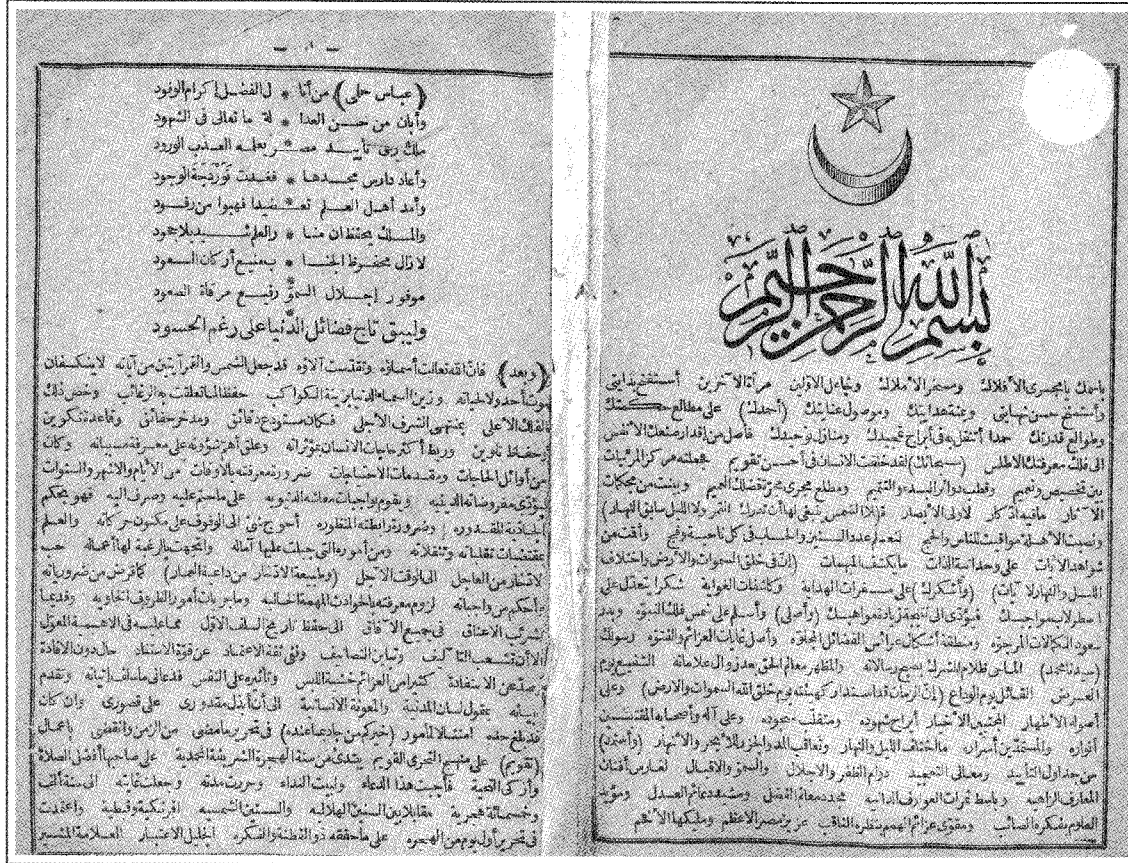 بسم الله الرحمن الرحيم
باسمك يا مجرى الأفلاك ومسخر الأملاك وجاعل الأولين مرآة الآخرين أستفتح بدايتى
وأستمنح حسن نهايتى وبمنة هدايتك وموصول عنايتك (أحمدك) على مطالع حكمتك
وطوالع قدرتك حمدا أنتقل به فى أبراج تمجيدك ومنازل توحيدك فأصل من إقدار صنعك الأنفس
الى فلك معرفتك الأطلس (سبحانك) لقد خلقت الانسان فى أحسن تقويم فجعلته مركز المرئيات
بين تخصيص وتعميم وقطب دوائر البدء والتتميم ومطلع مجرى مجرة فضلك العميم وبينت من محكمات
الآثار مافيه اذكار لاولى الأبصار (لا الشمس ينبغى لها أن تدرك القمر ولا الليل سابق النهار)
ونصبت الأهلة مواقيت للناس والحج لنعلم عدد السنين والحساب فى كل ناحية وفج وأقت من
شواهد الآيات على وحدانية الذات مايكشف المبهمات (إن فى خلق السموات والأرض واختلاف
الليل والنهار لآيات) (وأشكرك) على مسفرات الهداية وكاشفات الغواية شكرا يعتدل على
اسطرلاب مواجبك فيؤدى الى زيادة مواهبك (وأصلى) وأسلم على شمس فلك النبوّة وبدر
سعود الكمالات المرجوّة ومنطقة أشكال عرائس الفضائل المجلوّة وأصل غايات العزائم والفتوّة رسولك
(سيدنا محمد) الماحى ظلام الشرك بصبح رسالاته والمظهر معالم الحق بعدوله وعلاماته الشفيع يوم
العرض القائل يوم الوداع (إن الزمان قد استدار كهيئته يوم خلق الله السموات والأرض) وعلى
أصوله الأطهار المجتبين الأخيار أبراج شهوده ومنقلب سعوده وعلى آله وأصحابه المقتبسين
أنواره والمستمدّين أسراره ما اختلف الليل والنهار وتعاقب المد والجزر للأبحر والأنهار (وأستمد)
من جداول التأييد ومعالى التمجيد دوام الظفر والاجلال والسموّ والاقبال لغارس أفنان
المعارف الزاهية وباسط ثمرات العوارف الدانية مجدد معالم الفضل ومشيد دعائم العدل ومؤيد
العلوم بفكره الصائب ومقوى عزائم الهمم بنظره الثاقب عزيز مصر الاعظم ومليكها الأفخم
(عباس حلمى) من أنا * ل الفضل إكرام الوفود
وأبان من حسن العدا * لة ما تعالى فى الشهود
ملك ربى تأييد مصـ * ـر بعلمه العذب الورود
وأعاد دارس مجدها * فغدت تورّخه الوجود
وأمد أهل العلم تعـ * ـضيدا فهبوا من رقود
والملك يحتفظان منـا * والعلم شيد بلا جحود
لا زال محفوظ الجنـا * ب منيع أركان السعود
موفور إجلال السموّ * رفيع مرقاة الصعود
وليبق تاج فضائل الدّنيا على رغم الحسود
(وبعد) فان الله تعالت أسماؤه وتقدست آلاؤه قد جعل الشمس والقمر آيتين من آياته لاينكسفان
لموت أحد ولا لحياته وزين السماء الدنيا بزينة الكواكب حفظا لما تعلقت به الرغائب وخص ذلك
الفلك الأعلى بمنتهى الشرف الأجلى فكان مستودع دقائق ومدخر حقائق وقاعدة تكوين
وحفاظ نادين وربط أكثر حاجيات الانسان بمؤثراته وعلق أهم شؤونه على معرفة مسبباته وكان
من أوائل الحاجات ومقدمات الاحتياجات ضرورة معرفته بالأوقات من الأيام والأشهر والسنوات
ليؤدى مفروضاته الدينية ويقوم بواجبات معاشه الدنيوية على ماحتم عليه وصرف اليه فهو بحكم
المقدورة وضرورة رابطته المنظورة أحوج شئ الى الوقوف على مكنون حركاته والعلم
بمقتضيات تقلباته وتنقلاته ومن أموره التى جبلت عليها آماله واتجهت بالرغبة لها أعماله حب
الانتظار من العاجل الى الوقت الآجل كما فرض من ضرورياته
وأحكم من واجباته لزوم معرفته بالحوادث المهمة الخالية وماجريات أمور الظروف الخاوية وقديما
الاعناق فى جميع الآفاق الى حفظ تاريخ السلف الاول مما عليه فى الاهمية المعوّل
الا أن تشعب التآليف وتباين التصانيف ونفى ثقة الاعتماد عن قوّة الاستناد حال دون الافادة
وصدّ عن الاستفادة كثيرا من العزائم خشية اللبس وتأثيره على النفس فدعانى ماسلف إثباته وتقدم
بيانه بمقول لسان المدنية والمعونة الانسانية الى أن أبذل مقدورى على قصورى وان كان
قد طمع حده امتثالا لمأثور (خيركم من جاد بما عنده) فى تحرير ما مضى من الزمن وانقضى باعمال
(تقويم) على منهج التحرى القويم يبتدئ من سنة الهجرة الشريفة المحمدية على صاحبها أفضل الصلاة
وأزكى التحية فأجبت هذا الدعاء ولبيت النداء وحررت مدته وجعلت غايته الى سنة ألف
وخمسمائة هجرية مقابلا بين السنين الهلالية والسنين الشمسية افرنكية وقبطية واعتمدت
فى تحرير أول يوم من الهجرة على ما حققه ذو الفطنة والفكره الجليل الاعتبار العلامة المشير